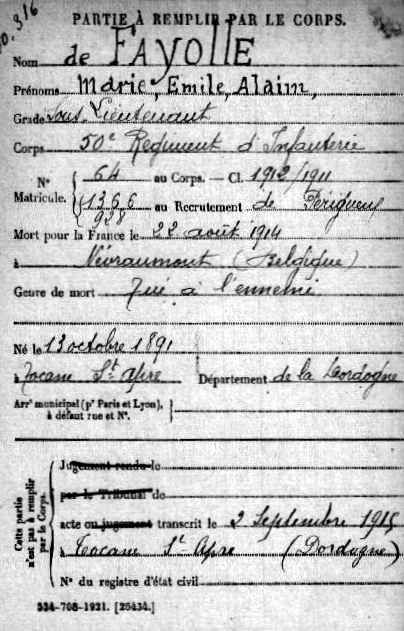 PARTIE À REMPLIR PAR LE CORPS.
Nom de FAYOLLE
Prénoms Marie, Emile, Alain,
Grade Sous Lieutenant
Corps 50e Regiment d'Infanterie
N° 64 au Corps. — Cl. 1912/1911
Matricule. 1366 au Recrutement de Périgueux
928
Mort pour la France le 22 août 1914
à Névraumont (Belgique)
Genre de mort Tué à l'ennemi
Né le 13 octobre 1891
à Tocane St Apre Département de la Dordogne
Arrt municipal (pr Paris et Lyon),
à défaut rue et N°.
Cette partie
n'est pas à remplir
par le Corps.
Jugement rendu le
par le Tribunal de
acte ou jugement transcrit le 2 Septembre 1915
à Tocane St Apre (Dordogne)
N° du registre d'état civil
534-708-1921. [26434.]